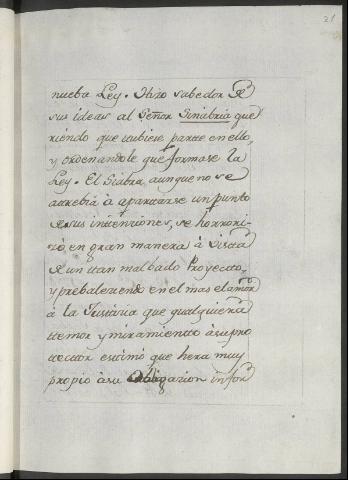 21
nueba Ley. Hizo sabedor de
sus ideas al Señor Sinabria que
riendo que tubiese parte en ello,
y ordenandole que formase la
Ley. El Siabra, aunque no se
atrebia à apartarse un punto
de sus intenziones, se horrori-
zó en gran manera à vista
de un tan malbado Proyecto,
y prebaleziendo en el mas el amor
à la Justizia que qualquiera
temor y miramiento àsu pro
tector estimó que hera muy
propio àsu obligazion infor